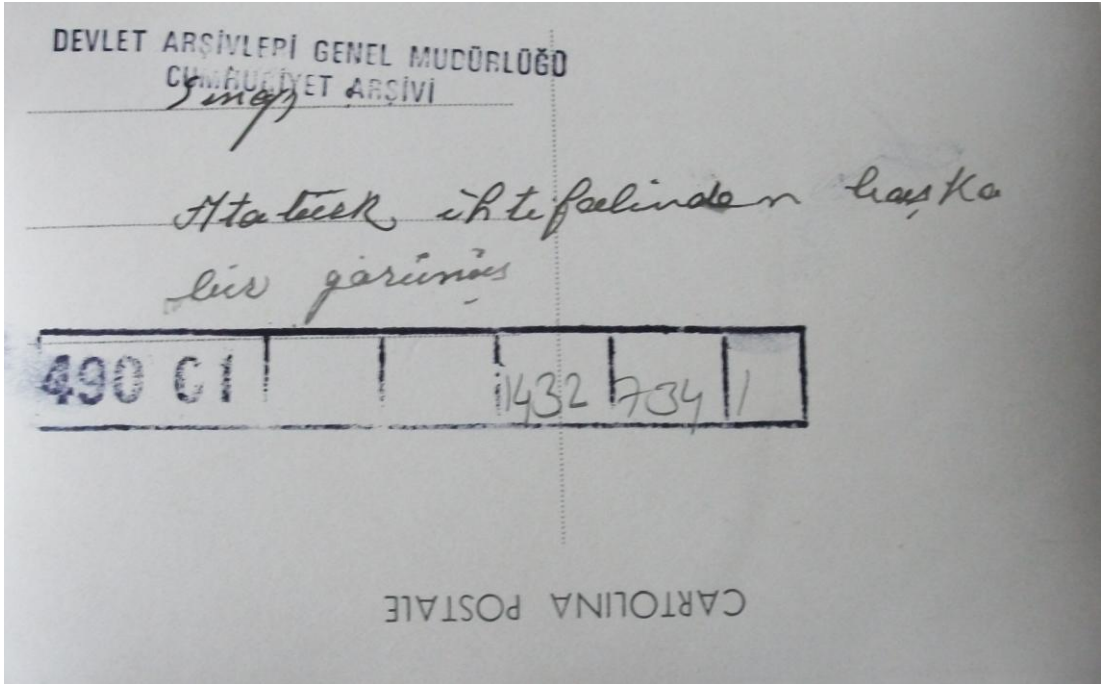 DEVLET ARŞİVLERİ GENEL MÜDÜRLÜĞÜ
CUMHURİYET ARŞİVİ
Sinop
Atatürk ihtifalinden başka
bir görünüş
490 C1 1432 734 1
CARTOLINA POSTALE